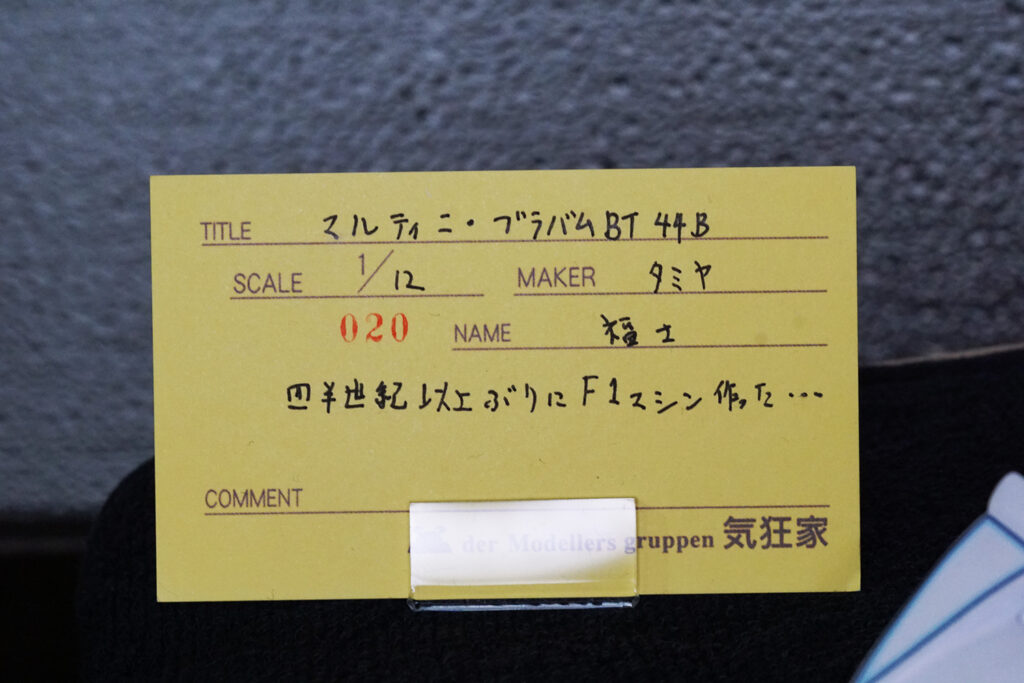 TITLE マルティニ・ブラバムBT 44B
SCALE 1/12 MAKER タミヤ
020 NAME 福士
四半世紀以上ぶりにF1マシン作った…
COMMENT
der Modellers gruppen 気狂家